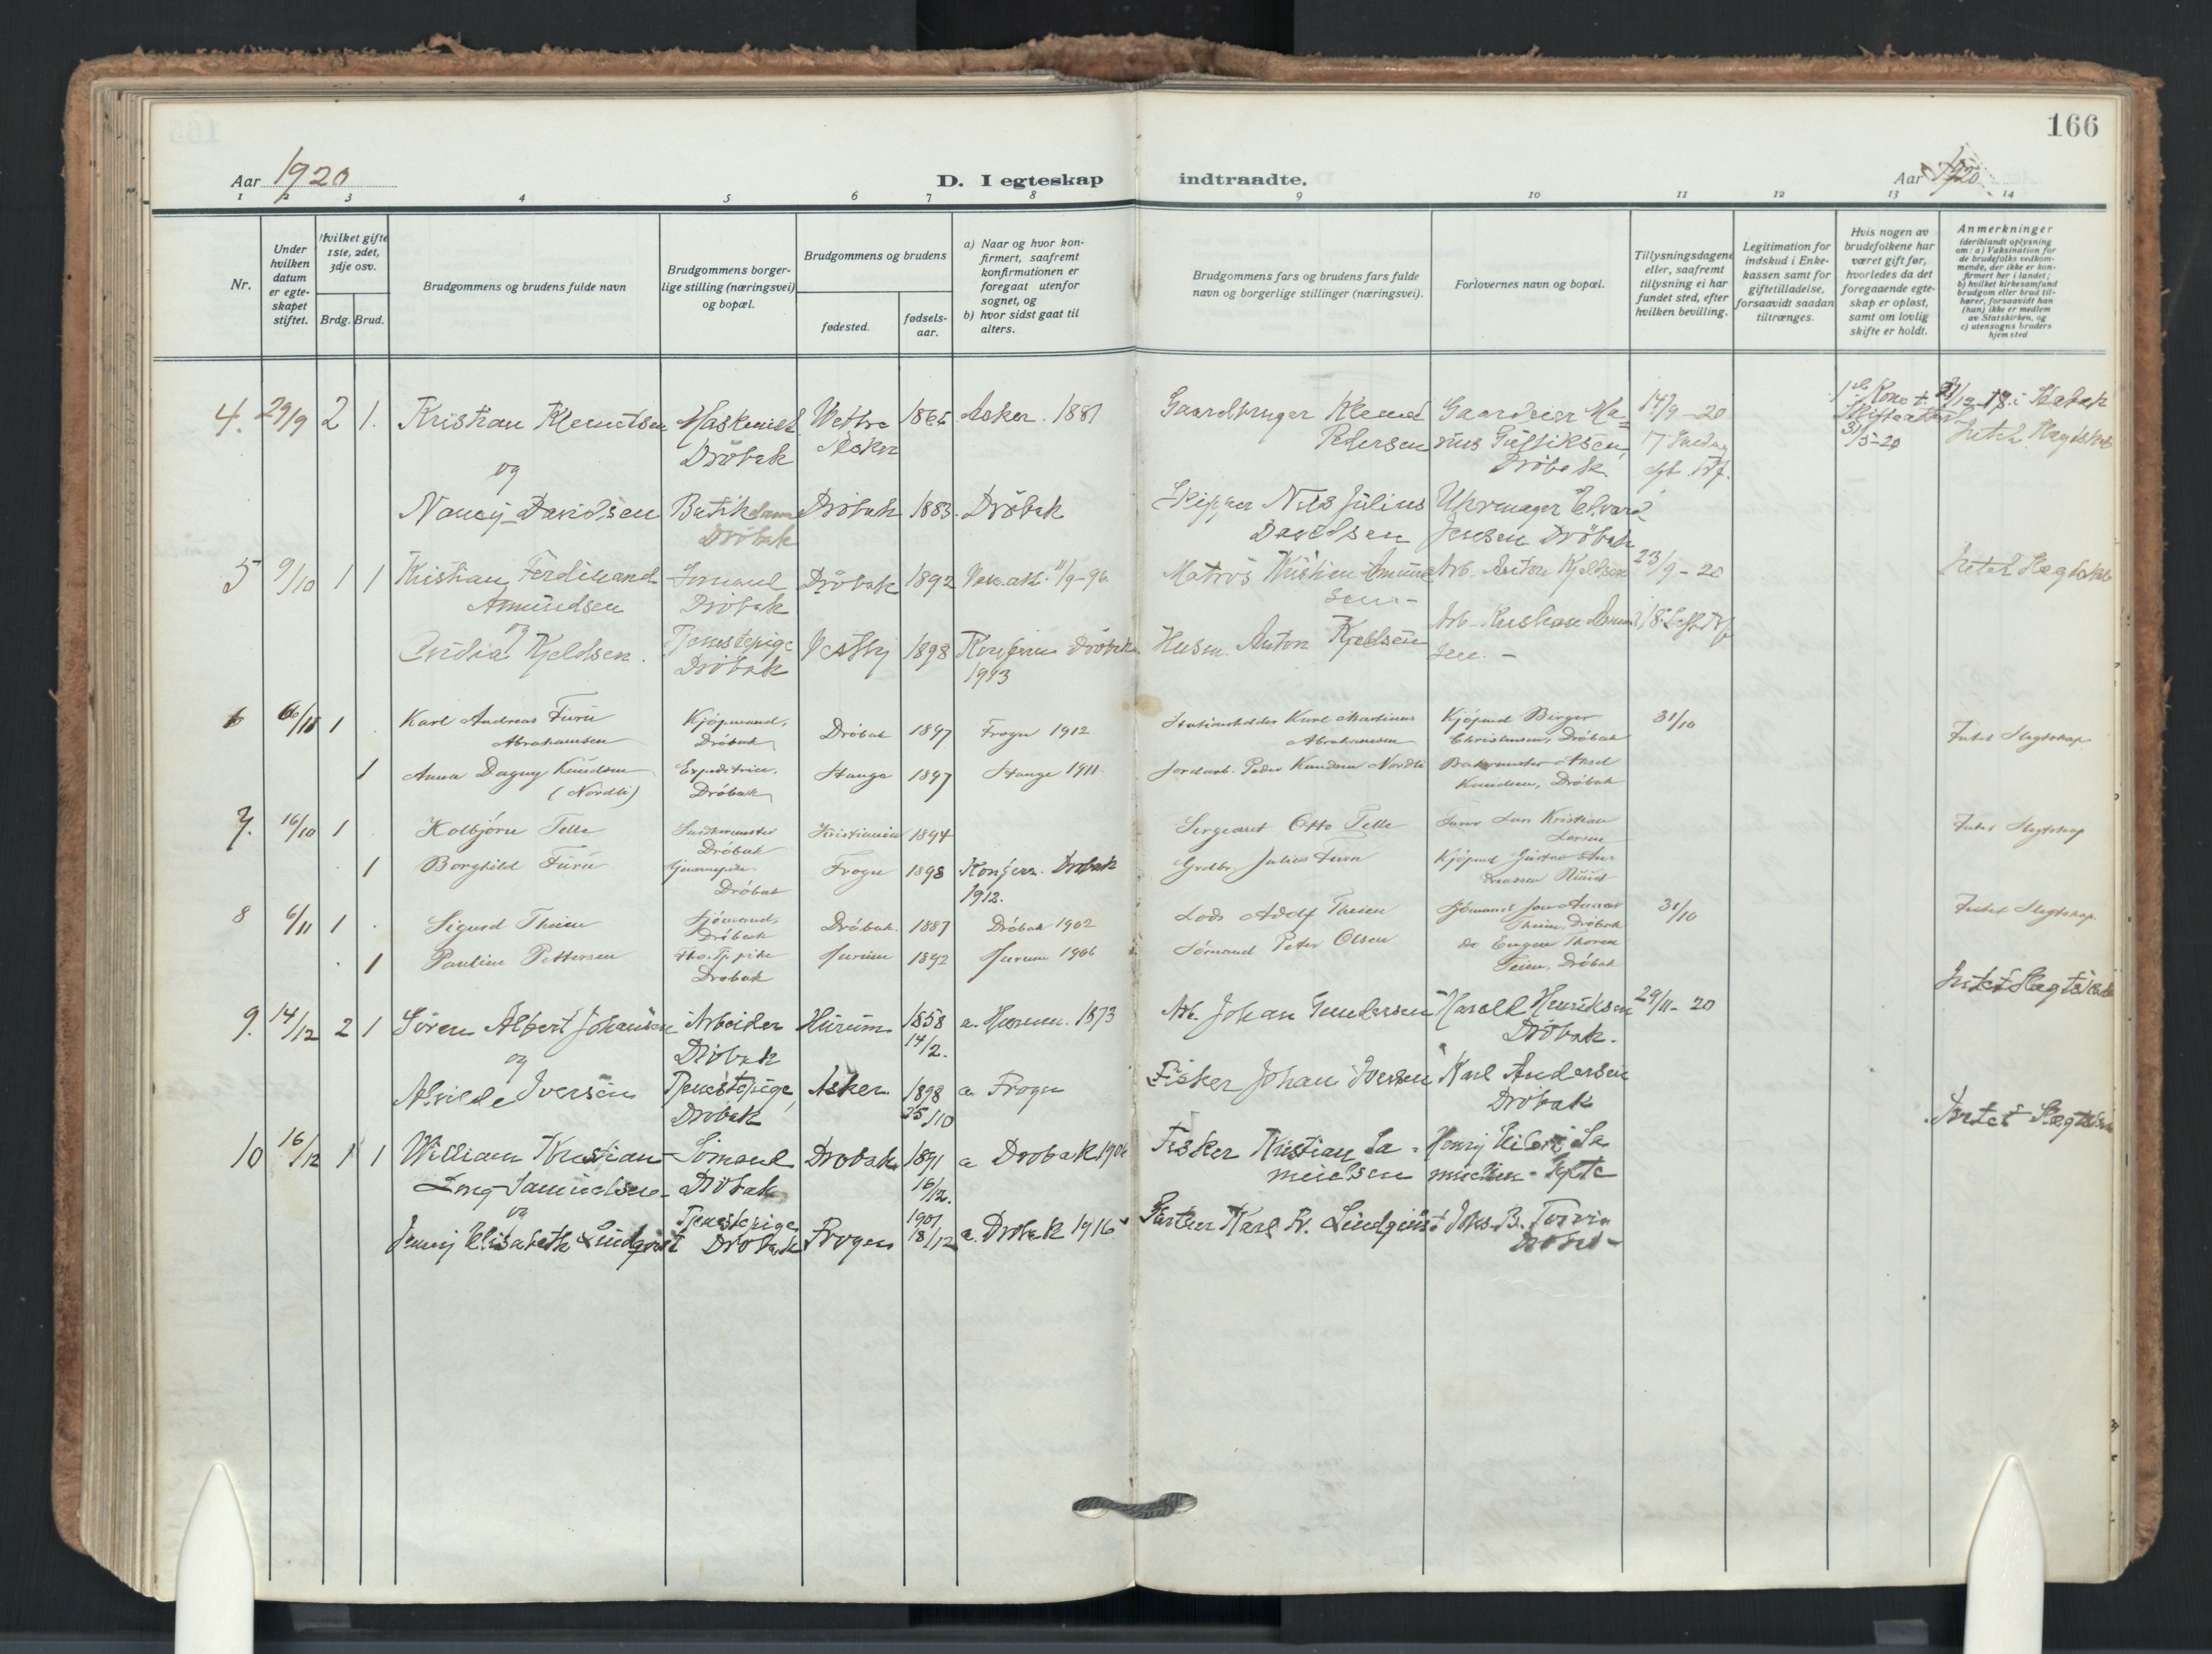 166
Aar 1920
D. I egteskap indtraadte.
Aar 1920
1 2 3 4 5 6 7 8 9 10 11 12 13 14
Nr.
Under hvilken datum er egteskapet stiftet.
Hvilket gifte 1ste, 2det, 3dje osv.
Brdg. Brud.
Brudgommens og brudens fulde navn
Brudgommens borgerlige stilling (næringsvei) og bopæl.
Brudgommens og brudens
fødested.
fødselsaar.
a) Naar og hvor konfirmert, saafremt konfirmationen er foregaat utenfor sognet, og
b) hvor sidst gaat til alters.
Brudgommens fars og brudens fars fulde navn og borgerlige stillinger (næringsvei).
Forlovernes navn og bopæl.
Tillysningsdagene eller, saafremt tillysning ei har fundet sted, efter hvilken bevilling.
Legitimation for indskud i Enkekassen samt for giftetilladelse, forsaavidt saadan tiltrænges.
Hvis nogen av brudefolkene har været gift før, hvorledes da det foregaaende egteskap er opløst, samt om lovlig skifte er holdt.
Anmerkninger
(deriblandt oplysning om: a) Vaksination for de brudefolks vedkommende, der ikke er konfirmert her i landet; b) hvilket kirkesamfund brudgom eller brud tilhører, forsaavidt han (hun) ikke er medlem av Statskirken, og c) utensogns bruders hjemsted
4. 29/9 2 1. Kristian Klemetsen Maskinist Drøbak Wettre Asker 1865 Asker. 1881 Gaardbruger Klemet Pedersen Gaardeier Marius Gulliksen, Drøbak 14/9-20
Intet Slegtskab
og
Nancy Davidsen Butikdame Drøbak Drøbak 1883. Drøbak Skipper Nils Julius Davidsen Uhrmager Edvard Jensen Drøbak
5 9/10 1 1 Kristian Ferdinand Amundsen Sømand Drøbak Drøbak 1892 11/9-96 Matros Kristian Amundsen Arb. Anton Kjeldsen 23/9-20 Intet Slegtskab
og
Kjeldsen. Tjenestepige Drøbak Vestby 1898 Konfirm Drøbak 1913 Husm. Anton Kjeldsen Arb. Kristian Amundsen.
6 6/11 1 Karl Andreas Furu Abrahamsen Kjøpmand, Drøbak Drøbak 1897 Frogn 1912 Stationsholder Karl Martinus Abrahamsen Kjøpmd Birger Christensen, Drøbak 31/10 Intet Slegtskap
1 Anna Dagny Knudsen (Nordli) Expeditrice, Drøbak Stange 1897 Stange 1911. Jordarb. Peder Knudsen Nordli Knudsen, Drøbak
7. 16/10 1 Kolbjørn Telle Drøbak Kristiania 1894 Sergeant Otto Telle Lars Kristian Larsen Intet Slegtskap
1 Borghild Furu Drøbak Frogn 1898 Konfirm. Drøbak 1912. Grdbr. Julius Furu Kjøpmd Gustav Andreassen Ruud
8 6/11 1 Sigurd Theien Sjømand, Drøbak Drøbak. 1887 Drøbak 1902 Lods Adolf Theien 31/10 Intet Slegtskap.
1 Pauline Pettersen Drøbak Hurum 1892 Hurum 1906 Sømand Peter Olsen do Eugen Drøbak
9. 14/12 2 1 Søren Albert Johansen Arbeider Drøbak Hurum 1858 14/2. a. Hurum. 1873 Arb. Johan Gundersen Harald Henriksen Drøbak. 29/11-20 Intet Slegtskab
og
Alvilde Iversen Tjenestepige, Drøbak Asker. 1898 25/10 a. Frogn Fisker Johan Iversen Karl Andersen Drøbak
10 16/12 1 1 William Kristian Long Samuelsen Sømand Drøbak Drøbak 1891 16/12. a Drøbak 1906 Fisker Kristian Samuelsen Henry Samuelsen Intet Slegtskab
og
Jenny Elisabeth Lindqvist Tjenestepige Drøbak Frogn 1901 18/12 a. Drøbak 1916 Gartner Karl Lindqvist Johs. B.